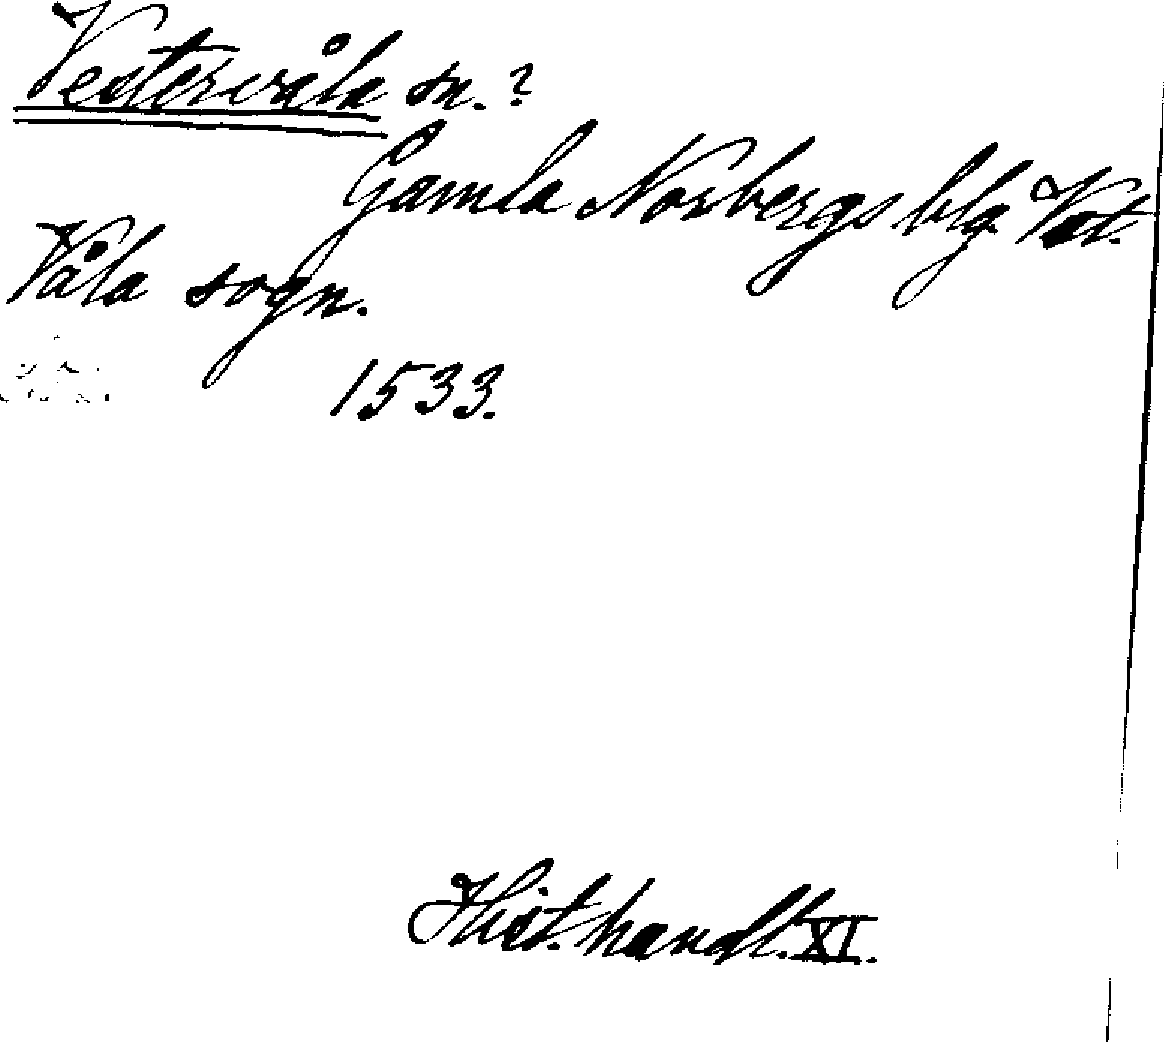 Vestervåla sn.?
Gamla Norbergs blg. Vst.
Våla sogn.
1533.
Hist. handl. XI.